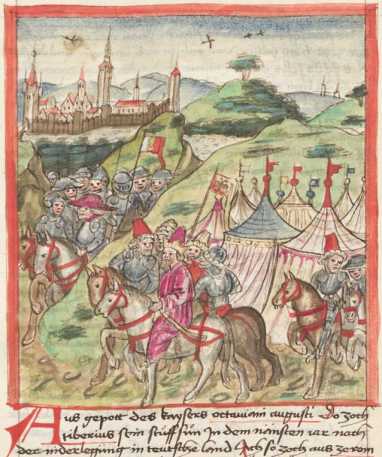 Aus gepott des kaysers octauiani augusti do zoch
tiberius sein stüff sun In dem iar nach
der niderlegung in teutsche land so zoch aus zerom